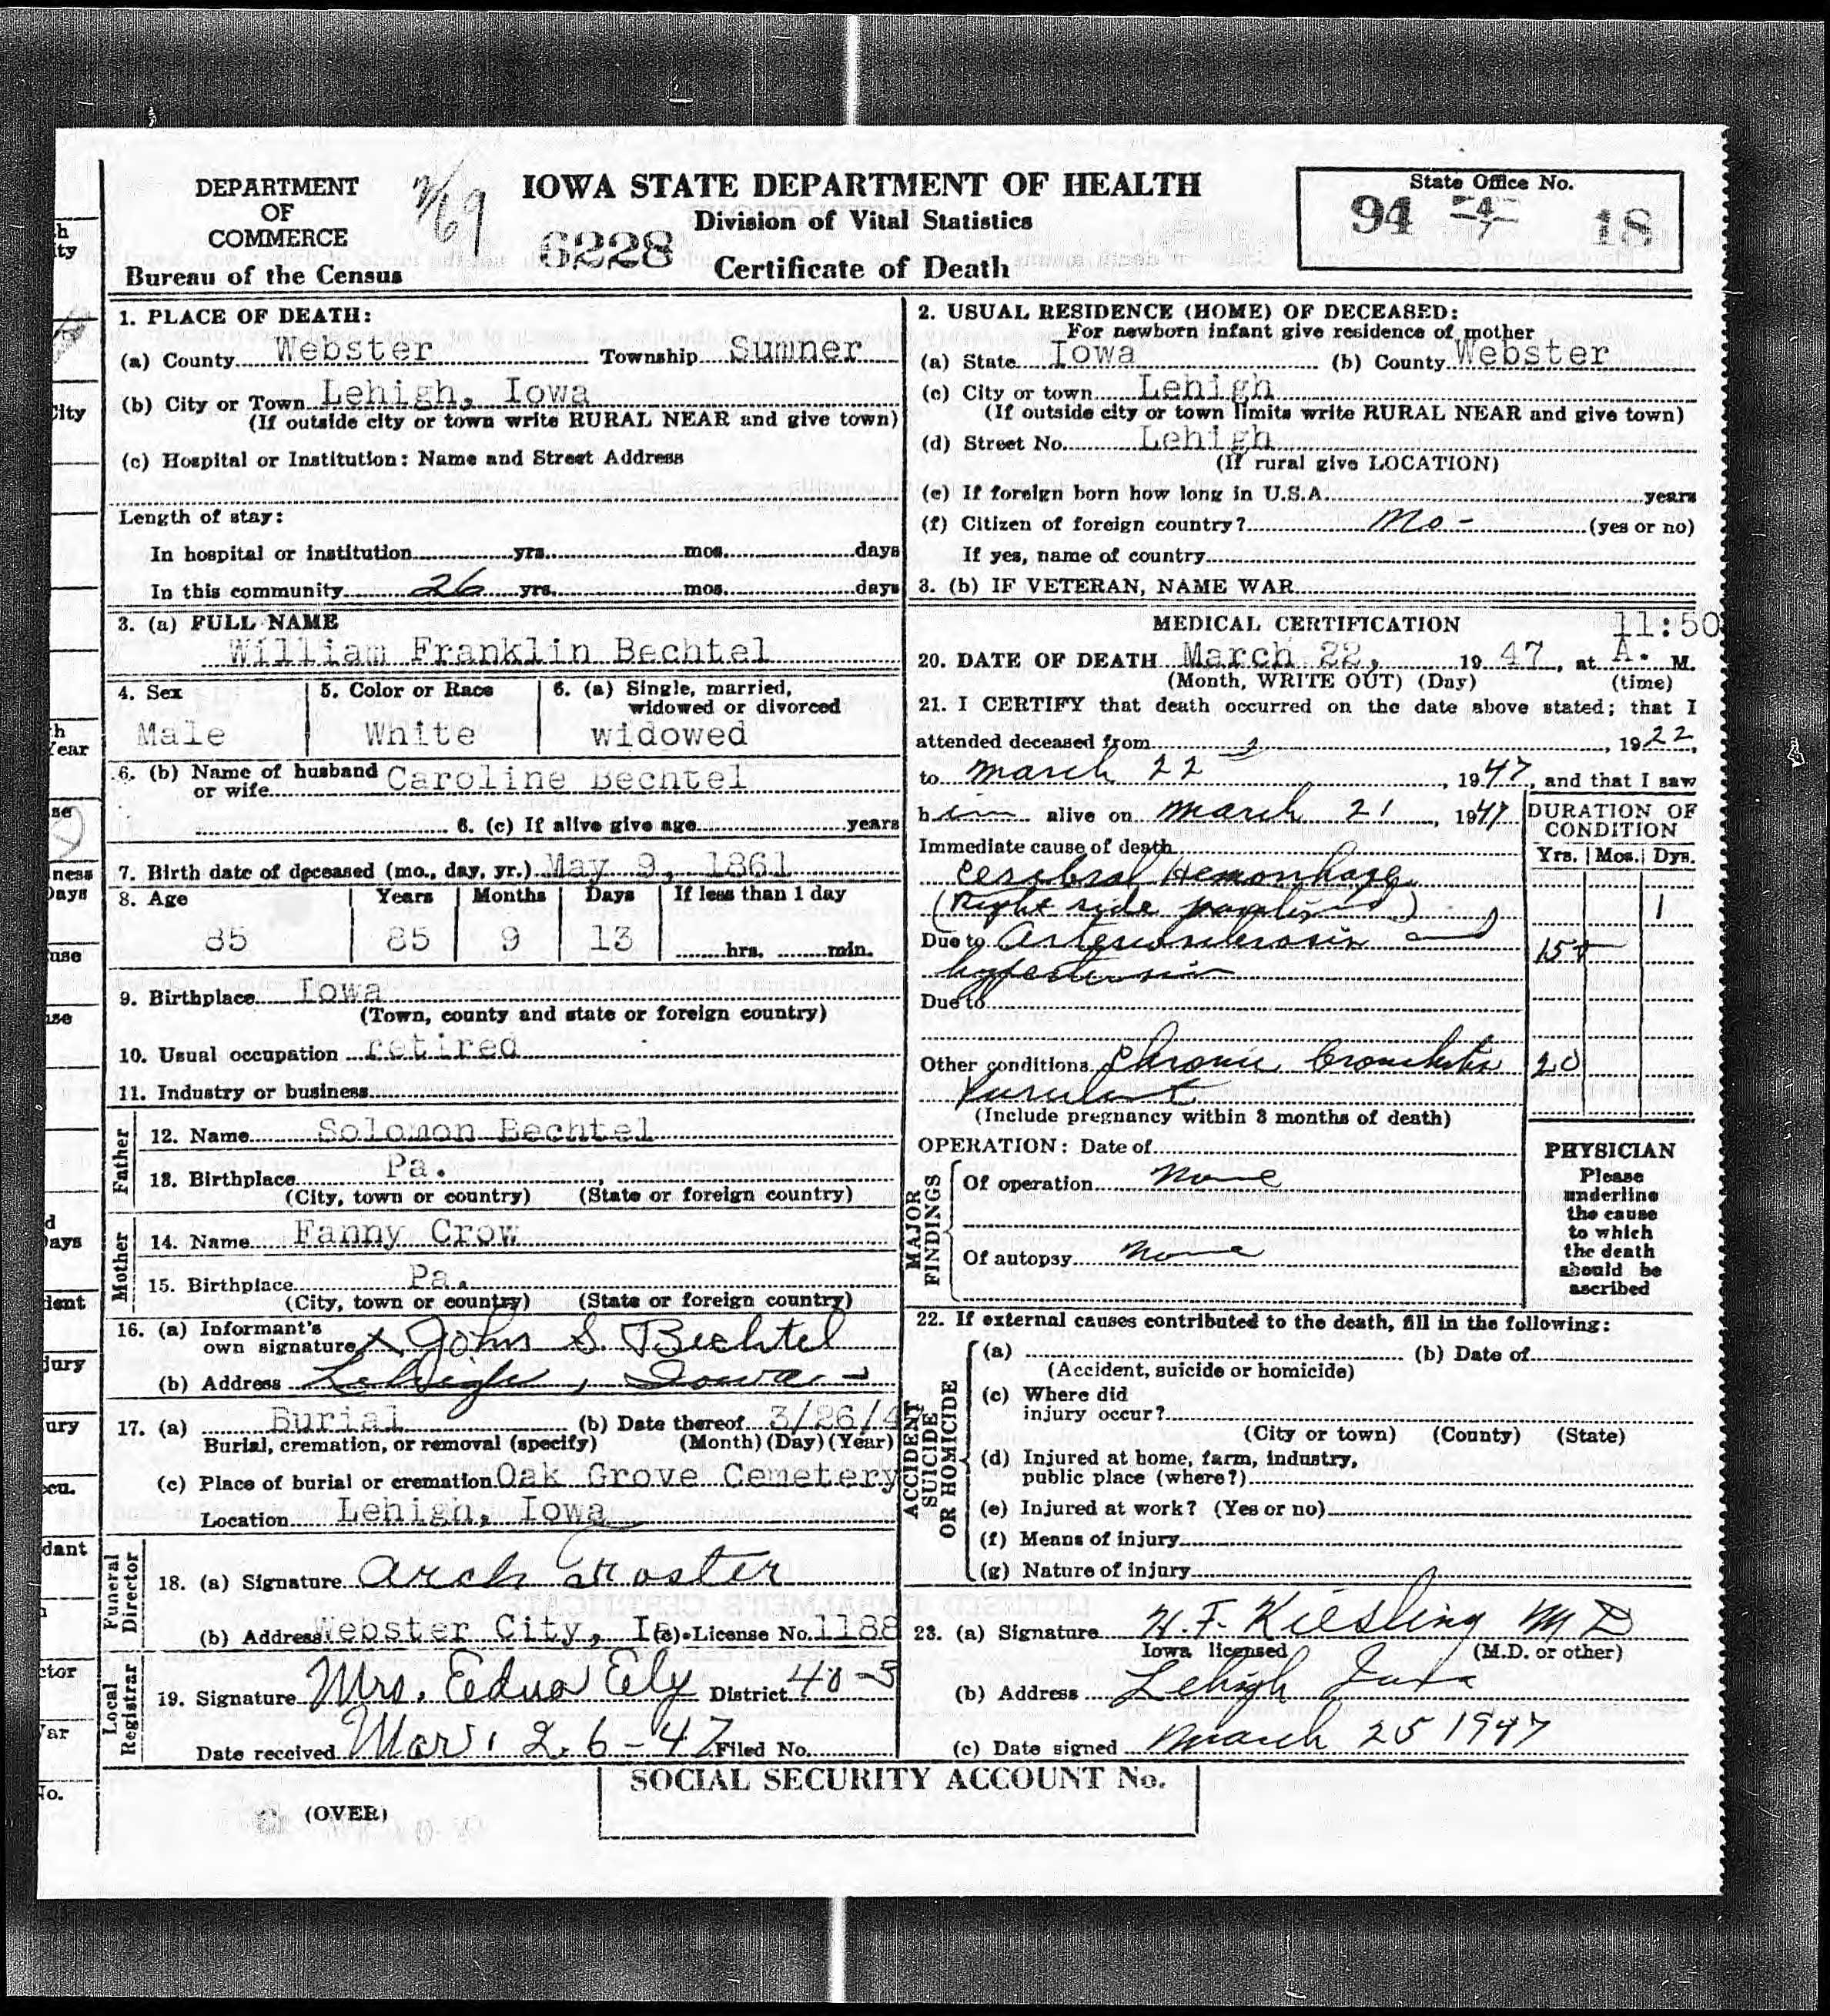 DEPARTMENT
OF
COMMERCE
Bureau of the Census
IOWA STATE DEPARTMENT OF HEALTH
Division of Vital Statistics
6228
Certificate of Death
State Office No.
94 18
1. PLACE OF DEATH:
(a) County Webster Township Sumner
(b) City or Town Lehigh, Iowa
(If outside city or town write RURAL NEAR and give town)
(c) Hospital or Institution: Name and Street Address
Length of stay:
In hospital or institution yrs. mos. days
In this community 26 yrs. mos. days
3. (a) FULL NAME
William Franklin Bechtel
4. Sex 5. Color or Race 6. (a) Single, married,
widowed or divorced
Male White widowed
6. (b) Name of husband
or wife Caroline Bechtel
6. (c) If alive give age years
7. Birth date of deceased (mo., day, yr.) May 9, 1861
8. Age Years Months Days If less than 1 day
85 85 9 13 hrs. min.
9. Birthplace Iowa
(Town, county and state or foreign country)
10. Usual occupation retired
11. Industry or business
Father
12. Name Solomon Bechtel
13. Birthplace Pa.
(City, town or country) (State or foreign country)
Mother
14. Name Fanny Crow
15. Birthplace Pa.
(City, town or country) (State or foreign country)
16. (a) Informant's
own signature x John S. Bechtel
(b) Address Lehigh, Iowa -
17. (a) Burial (b) Date thereof 3/26/47
Burial, cremation, or removal (specify) (Month) (Day) (Year)
(c) Place of burial or cremation Oak Grove Cemetery
Location Lehigh, Iowa
Funeral Director
18. (a) Signature Arch Foster
(b) Address Webster City, Ia. (c) License No. 1188
Local Registrar
19. Signature Mrs. Edna Ely District 40-3
Date received Mar. 26-47 Filed No.
2. USUAL RESIDENCE (HOME) OF DECEASED:
For newborn infant give residence of mother
(a) State Iowa (b) County Webster
(c) City or town Lehigh
(If outside city or town limits write RURAL NEAR and give town)
(d) Street No. Lehigh
(If rural give LOCATION)
(e) If foreign born how long in U.S.A. years
(f) Citizen of foreign country? no - (yes or no)
If yes, name of country
3. (b) IF VETERAN, NAME WAR
MEDICAL CERTIFICATION 11:50
20. DATE OF DEATH March 22, 1947, at A. M.
(Month, WRITE OUT) (Day) (time)
21. I CERTIFY that death occurred on the date above stated; that I
attended deceased from , 1922,
to March 22, 1947, and that I saw
him alive on March 21, 1947
DURATION OF
CONDITION
Yrs. Mos. Dys.
Immediate cause of death
Cerebral Hemorrhage
(Right side paralysis) 1
Due to Arteriosclerosis and 15+
hypertension
Due to
Other conditions Chronic Bronchitis 20
Purulent
(Include pregnancy within 3 months of death)
OPERATION: Date of
MAJOR FINDINGS
Of operation None
Of autopsy None
PHYSICIAN
Please
underline
the cause
to which
the death
should be
ascribed
22. If external causes contributed to the death, fill in the following:
ACCIDENT
SUICIDE
OR HOMICIDE
(a) (b) Date of
(Accident, suicide or homicide)
(c) Where did
injury occur?
(City or town) (County) (State)
(d) Injured at home, farm, industry,
public place (where?)
(e) Injured at work? (Yes or no)
(f) Means of injury
(g) Nature of injury
23. (a) Signature H. F. Kiesling M D
Iowa licensed (M.D. or other)
(b) Address Lehigh Iowa
(c) Date signed March 25 1947
SOCIAL SECURITY ACCOUNT No.
(OVER)